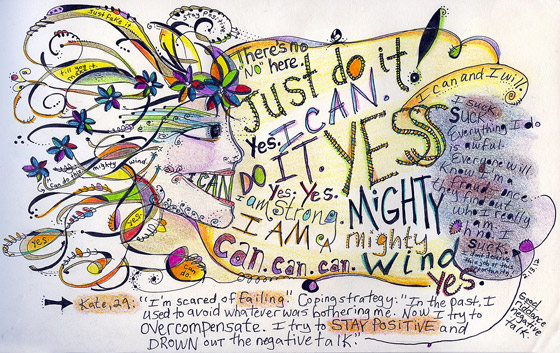 Just fake it
till you make it.
Stay Positive
There's no
'No' here.
Just do it!
Yes. I CAN.
DO IT. YES
Yes. Yes.
I am strong.
I AM a
MiGHTY
mighty
wind
can. can. can.
Yes.
I can and I will.
I suck.
SUCK
Everything I do
is awful.
Everyone will
know I'm a
fraud once
they find out
who I really
am.
I
suck.
2.13.12
I CAN
Can do
mighty
wind
yes.
yes.
yes.
Can do.
Kate, 29: "I'm scared of failing." Coping strategy: "In the past, I
used to avoid whatever was bothering me. Now I try to
overcompensate. I try to STAY POSITIVE and
DROWN out the negative talk."
Good
riddance
negative
talk.